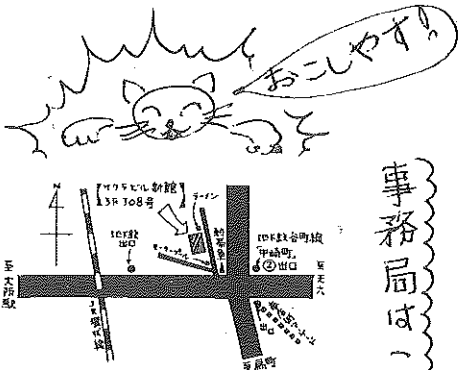 おこしやす!
事務局は
サクラビル新館
3F 308号
ラーメン
N
地下鉄
出口
モータープール
地下鉄谷町線
「中崎町」
②出口
至大阪駅
至天六
JR環状線
出口
至扇町